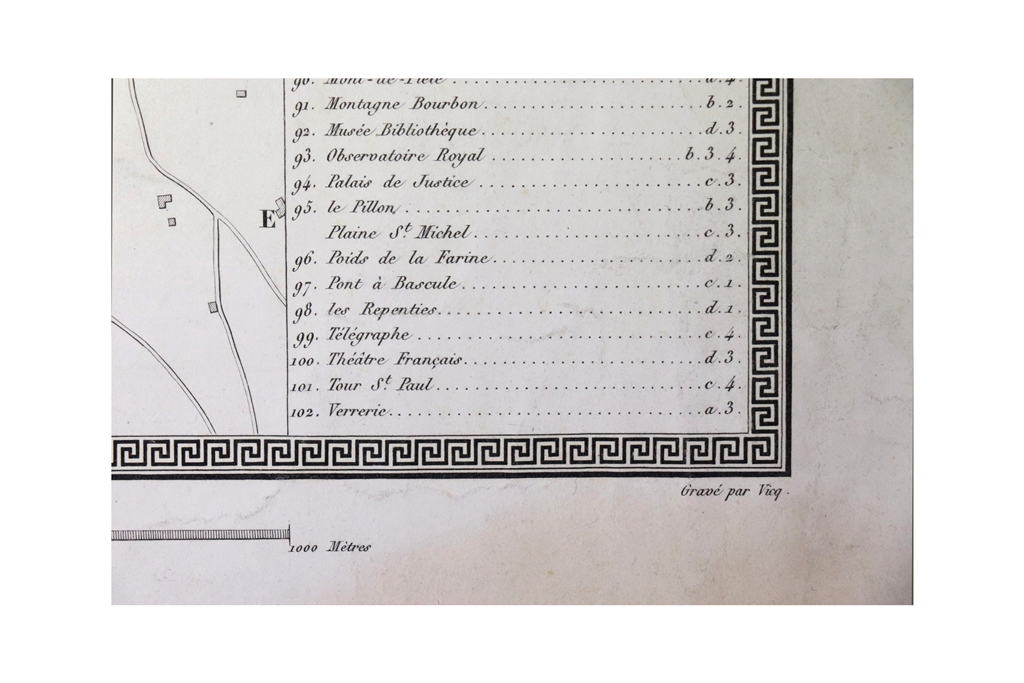 90. Mont-de-Piété . . . . . . . . . . . . . . . . . . . . . . . . . . a. 4.
91. Montagne Bourbon . . . . . . . . . . . . . . . . . . . . . . b. 2.
92. Musée Bibliothèque . . . . . . . . . . . . . . . . . . . . . . d. 3.
93. Observatoire Royal . . . . . . . . . . . . . . . . . . . b. 3. 4.
94. Palais de Justice . . . . . . . . . . . . . . . . . . . . . . . c. 3.
E
95. le Pillon . . . . . . . . . . . . . . . . . . . . . . . . . . . . . . b. 3.
Plaine St Michel . . . . . . . . . . . . . . . . . . . . . . . c. 3.
96. Poids de la Farine . . . . . . . . . . . . . . . . . . . . . d. 2.
97. Pont à Bascule . . . . . . . . . . . . . . . . . . . . . . . . c. 1.
98. les Repenties . . . . . . . . . . . . . . . . . . . . . . . . . . d. 1.
99. Télégraphe . . . . . . . . . . . . . . . . . . . . . . . . . . . . c. 4.
100. Théâtre Français . . . . . . . . . . . . . . . . . . . . . . . d. 3.
101. Tour St Paul . . . . . . . . . . . . . . . . . . . . . . . . . . c. 4.
102. Verrerie . . . . . . . . . . . . . . . . . . . . . . . . . . . . . . a. 3.
Gravé par Vicq.
1000 Mètres